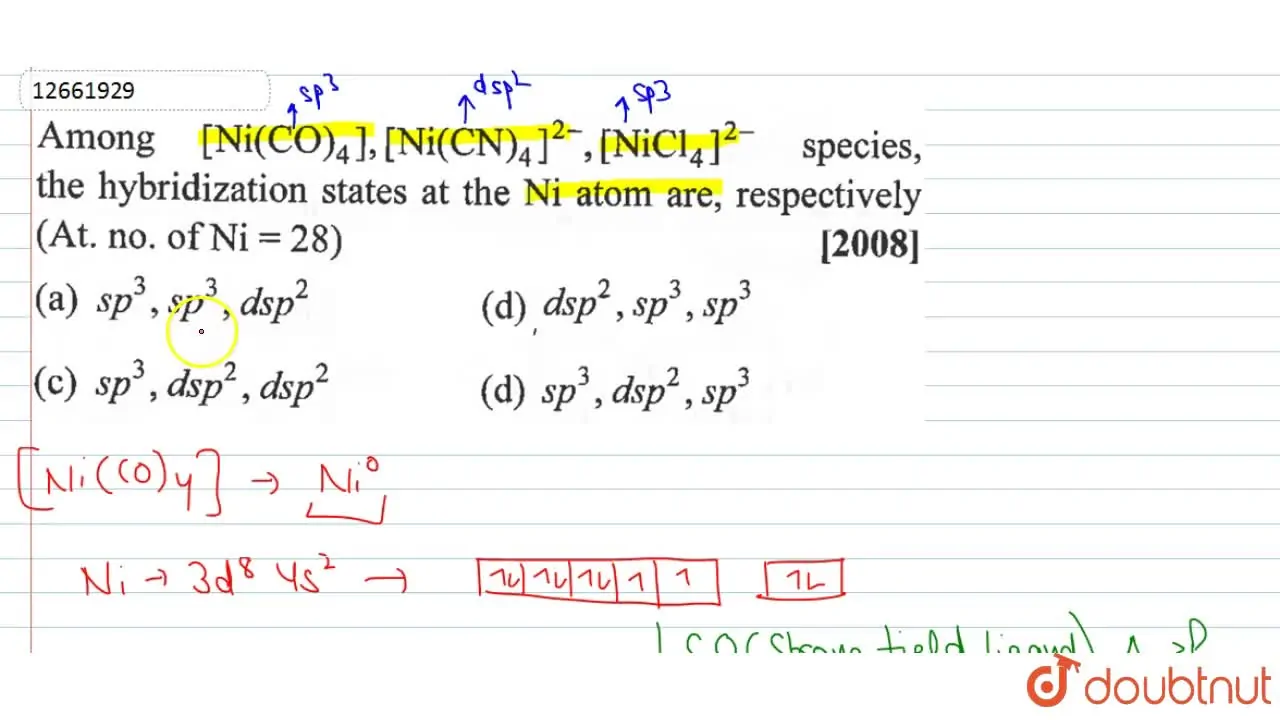 12661929
sp³ dsp² sp3
Among [Ni(CO)₄], [Ni(CN)₄]²⁻, [NiCl₄]²⁻ species,
the hybridization states at the Ni atom are, respectively
(At. no. of Ni = 28) [2008]
(a) sp³, sp³, dsp² (d) dsp², sp³, sp³
(c) sp³, dsp², dsp² (d) sp³, dsp², sp³
[Ni(CO)4] → Ni⁰
Ni → 3d⁸ 4s² → 1L 1L 1L 1 1 1L
CO (Strong field ligand)
doubtnut